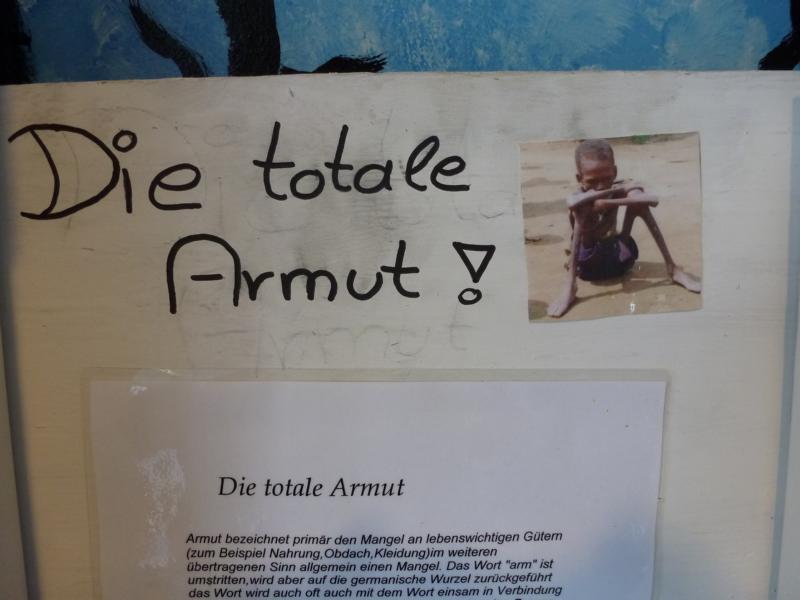 Die totale
Armut!
Die totale Armut
Armut bezeichnet primär den Mangel an lebenswichtigen Gütern
(zum Beispiel Nahrung,Obdach,Kleidung)im weiteren
übertragenen Sinn allgemein einen Mangel. Das Wort "arm" ist
umstritten,wird aber auf die germanische Wurzel zurückgeführt
das Wort wird auch oft auch mit dem Wort einsam in Verbindung